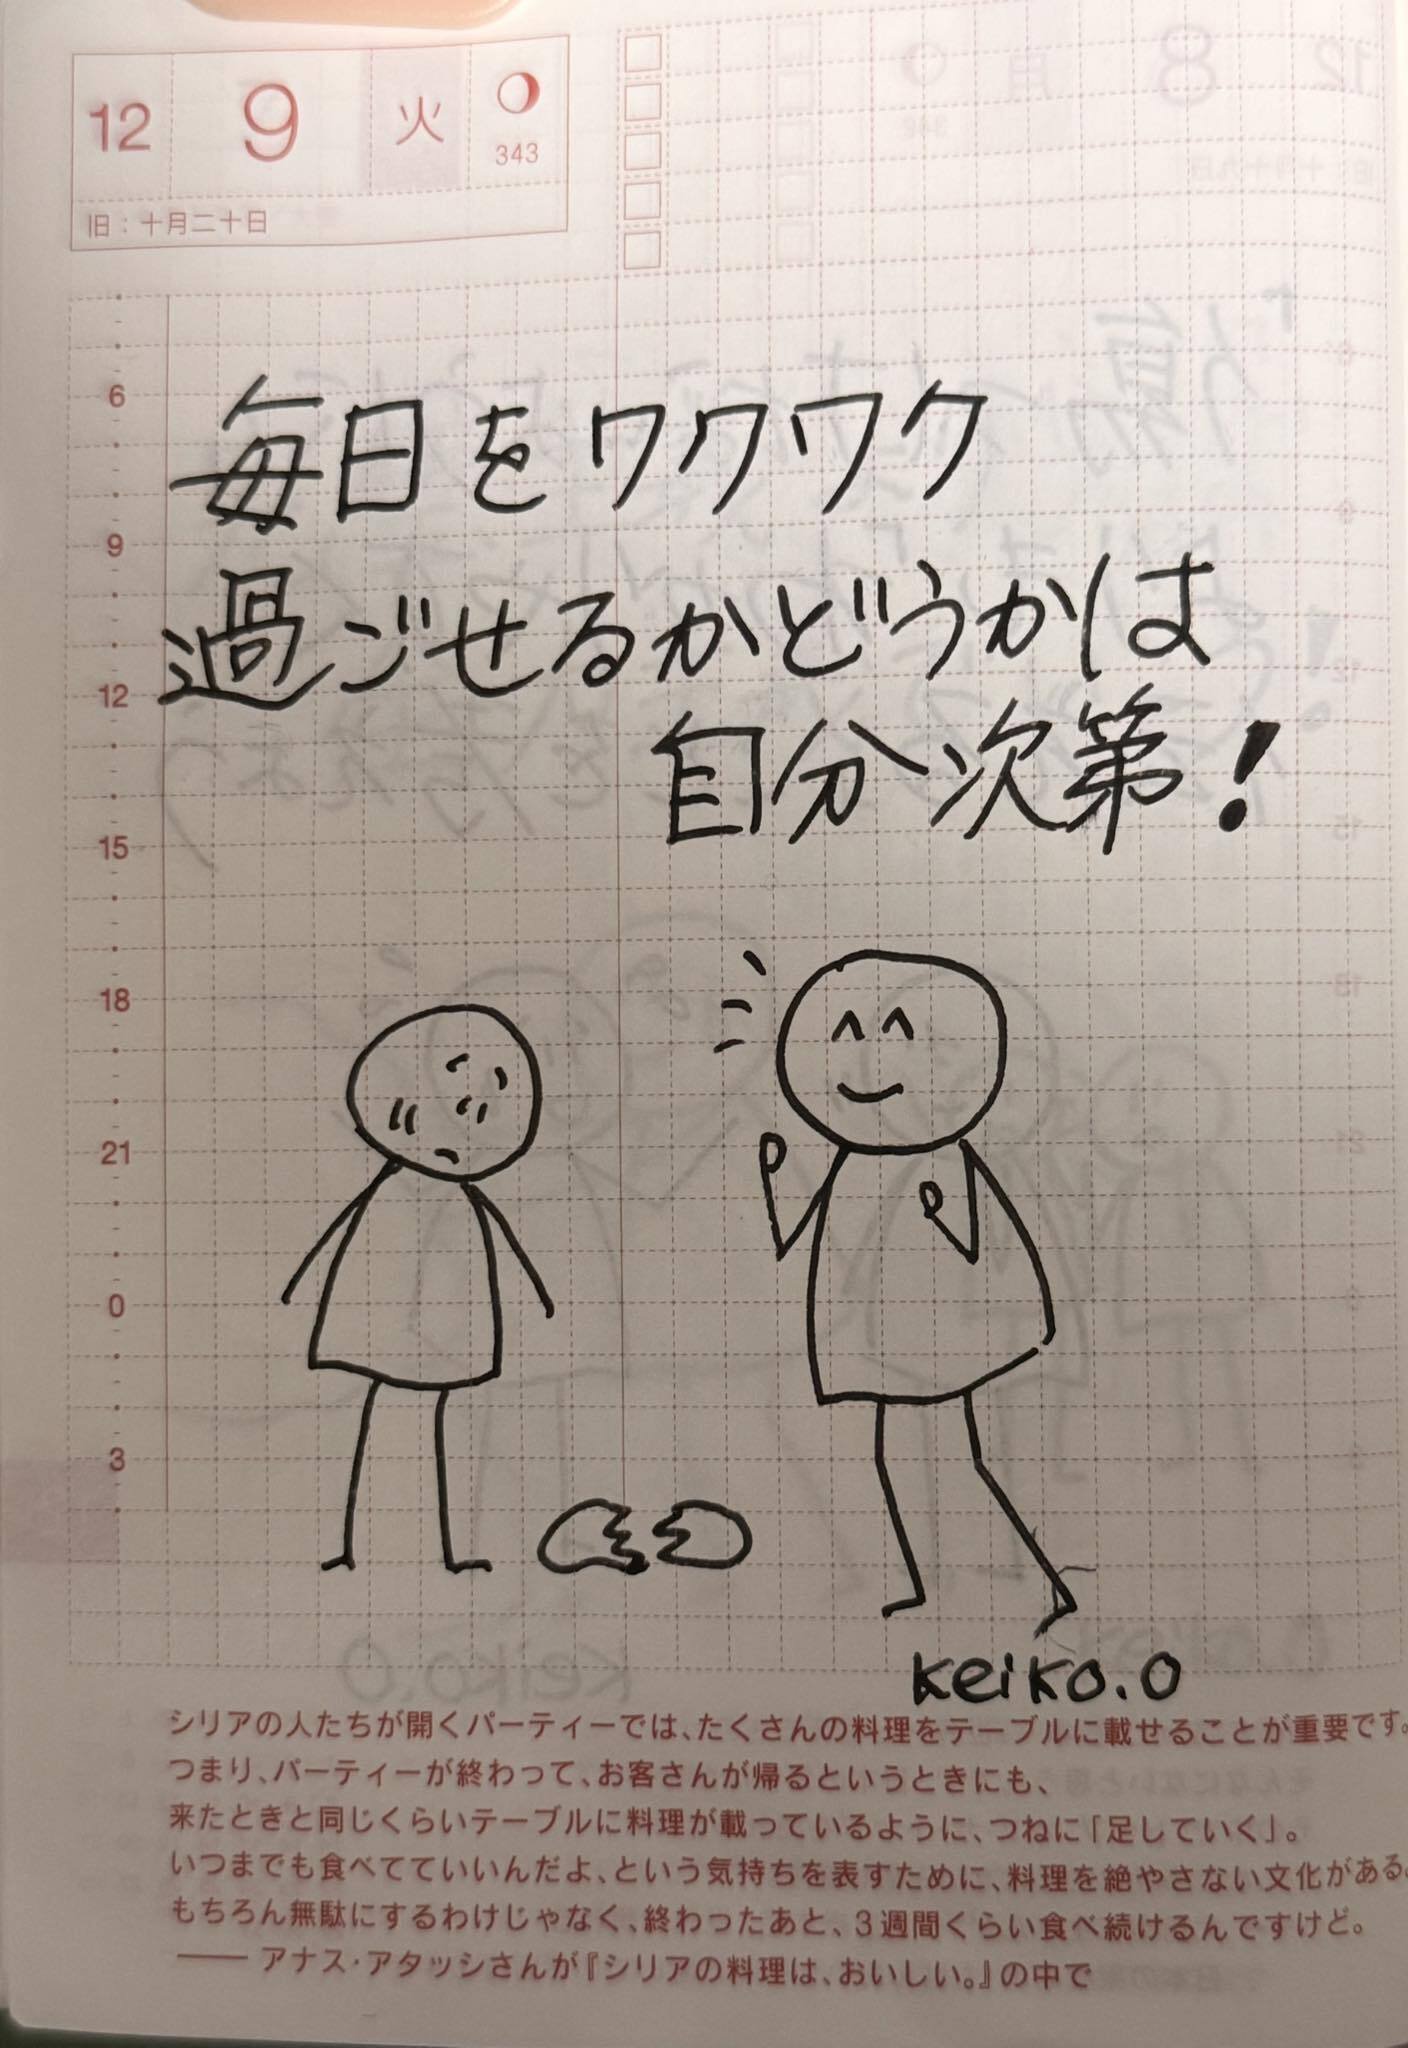 12 9 火
343
旧：十月二十日
毎日をワクワク
過ごせるかどうかは
自分次第！
6
9
12
15
18
21
0
3
keiko.o
シリアの人たちが開くパーティーでは、たくさんの料理をテーブルに載せることが重要です。
つまり、パーティーが終わって、お客さんが帰るというときにも、
来たときと同じくらいテーブルに料理が載っているように、つねに「足していく」。
いつまでも食べてていいんだよ、という気持ちを表すために、料理を絶やさない文化がある。
もちろん無駄にするわけじゃなく、終わったあと、3週間くらい食べ続けるんですけど。
―― アナス・アタッシさんが『シリアの料理は、おいしい。』の中で